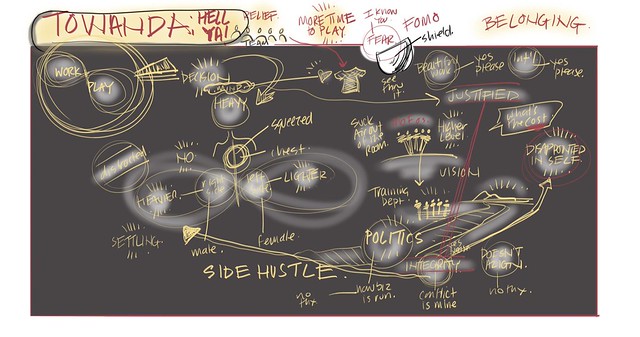 TOWANDA:
HELL
YA!
RELIEF.
Team
MORE TIME
TO PLAY.
I know
you
FEAR
FOMO
shield.
see
thru
it
BELONGING.
WORK
PLAY
DECISION
HEAVY
squeezed
chest.
distorted
NO
HEAVIER
right
left
LIGHTER
SETTLING.
male.
female.
SIDE HUSTLE.
Beautiful
yes
please
yes
please.
JUSTIFIED
what's
the cost
DISAPPOINTED
IN SELF.
SUCK
AIR OUT
OF THE
ROOM.
Higher
Level
VISION
Training
dept.
POLITICS
INTEGRITY
yes
please
DOESN'T
ALIGN.
no thx.
no
thx
how biz
is run.
conflict
is mine